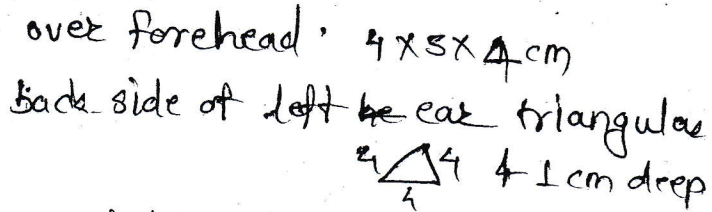 over forehead. 4x5x4cm
back side of left ear triangular
4 4 & 1 cm deep
4